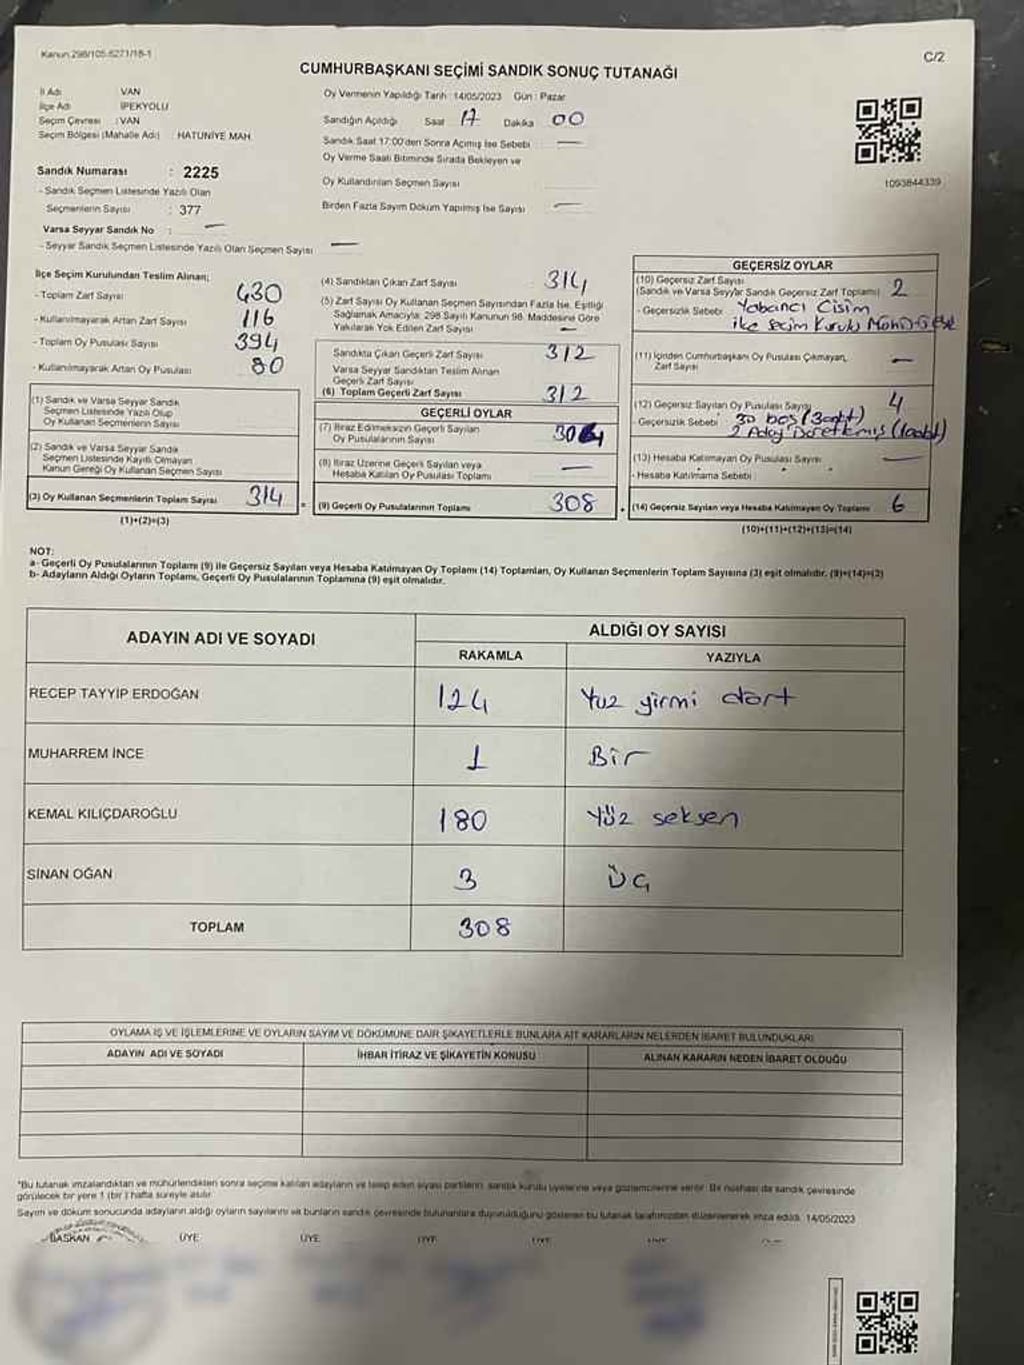 Kanun:298/105-6271/18-1
C/2
CUMHURBAŞKANI SEÇİMİ SANDIK SONUÇ TUTANAĞI
İl Adı VAN
İlçe Adı İPEKYOLU
Seçim Çevresi : VAN
Seçim Bölgesi (Mahalle Adı) : HATUNİYE MAH.
Sandık Numarası : 2225
- Sandık Seçmen Listesinde Yazılı Olan
Seçmenlerin Sayısı : 377
Varsa Seyyar Sandık No : —
- Seyyar Sandık Seçmen Listesinde Yazılı Olan Seçmen Sayısı —
Oy Vermenin Yapıldığı Tarih : 14/05/2023 Gün : Pazar
Sandığın Açıldığı Saat 17 Dakika 00
Sandık Saat 17:00'den Sonra Açılmış İse Sebebi —
Oy Verme Saati Bitiminde Sırada Bekleyen ve
Oy Kullandırılan Seçmen Sayısı
Birden Fazla Sayım Döküm Yapılmış İse Sayısı —
1093844339
İlçe Seçim Kurulundan Teslim Alınan;
- Toplam Zarf Sayısı 430
- Kullanılmayarak Artan Zarf Sayısı 116
- Toplam Oy Pusulası Sayısı 394
- Kullanılmayarak Artan Oy Pusulası 80
(1) Sandık ve Varsa Seyyar Sandık
Seçmen Listesinde Yazılı Olup
Oy Kullanan Seçmenlerin Sayısı
(2) Sandık ve Varsa Seyyar Sandık
Seçmen Listesinde Kayıtlı Olmayan
Kanun Gereği Oy Kullanan Seçmen Sayısı
(3) Oy Kullanan Seçmenlerin Toplam Sayısı 314
(1)+(2)=(3)
(4) Sandıktan Çıkan Zarf Sayısı 314
(5) Zarf Sayısı Oy Kullanan Seçmen Sayısından Fazla İse, Eşitliği
Sağlamak Amacıyla; 298 Sayılı Kanunun 98. Maddesine Göre
Yakılarak Yok Edilen Zarf Sayısı —
Sandıkta Çıkan Geçerli Zarf Sayısı 312
Varsa Seyyar Sandıktan Teslim Alınan
Geçerli Zarf Sayısı
(6) Toplam Geçerli Zarf Sayısı 312
GEÇERLİ OYLAR
(7) İtiraz Edilmeksizin Geçerli Sayılan
Oy Pusulalarının Sayısı
(8) İtiraz Üzerine Geçerli Sayılan veya
Hesaba Katılan Oy Pusulası Toplamı —
(9) Geçerli Oy Pusulalarının Toplamı 308
GEÇERSİZ OYLAR
(10) Geçersiz Zarf Sayısı
(Sandık ve Varsa Seyyar Sandık Geçersiz Zarf Toplamı) 2
- Geçersizlik Sebebi Yabancı Cisim
ilçe seçim Kurulu
(11) İçinden Cumhurbaşkanı Oy Pusulası Çıkmayan
Zarf Sayısı —
(12) Geçersiz Sayılan Oy Pusulası Sayısı 4
- Geçersizlik Sebebi boş
2 Aday
(13) Hesaba Katılmayan Oy Pusulası Sayısı —
- Hesaba Katılmama Sebebi :
(14) Geçersiz Sayılan veya Hesaba Katılmayan Oy Toplamı 6
(10)+(11)+(12)+(13)=(14)
NOT:
a- Geçerli Oy Pusulalarının Toplamı (9) ile Geçersiz Sayılan veya Hesaba Katılmayan Oy Toplamı (14) Toplamları, Oy Kullanan Seçmenlerin Toplam Sayısına (3) eşit olmalıdır. (9)+(14)=(3)
b- Adayların Aldığı Oyların Toplamı, Geçerli Oy Pusulalarının Toplamına (9) eşit olmalıdır.
ADAYIN ADI VE SOYADI
ALDIĞI OY SAYISI
RAKAMLA YAZIYLA
RECEP TAYYİP ERDOĞAN 124 Yuz yirmi dört
MUHARREM İNCE 1 Bir
KEMAL KILIÇDAROĞLU 180 Yüz seksen
SİNAN OĞAN 3 Üç
TOPLAM 308
OYLAMA İŞ VE İŞLEMLERİNE VE OYLARIN SAYIM VE DÖKÜMÜNE DAİR ŞİKAYETLERLE BUNLARA AİT KARARLARIN NELERDEN İBARET BULUNDUKLARI
ADAYIN ADI VE SOYADI İHBAR İTİRAZ VE ŞİKAYETİN KONUSU ALINAN KARARIN NEDEN İBARET OLDUĞU
"Bu tutanak imzalandıktan ve mühürlendikten sonra seçime katılan adayların ve talep eden siyasi partilerin, sandık kurulu üyelerine veya gözlemcilerine verilir. Bir nüshası da sandık çevresinde
görülecek bir yere 1 (bir ) hafta süreyle asılır.
Sayım ve döküm sonucunda adayların aldığı oyların sayılarını ve bunların sandık çevresinde bulunanlara duyurulduğunu gösteren bu tutanak tarafımızdan düzenlenerek imza edildi. 14/05/2023
BAŞKAN ÜYE ÜYE ÜYE ÜYE